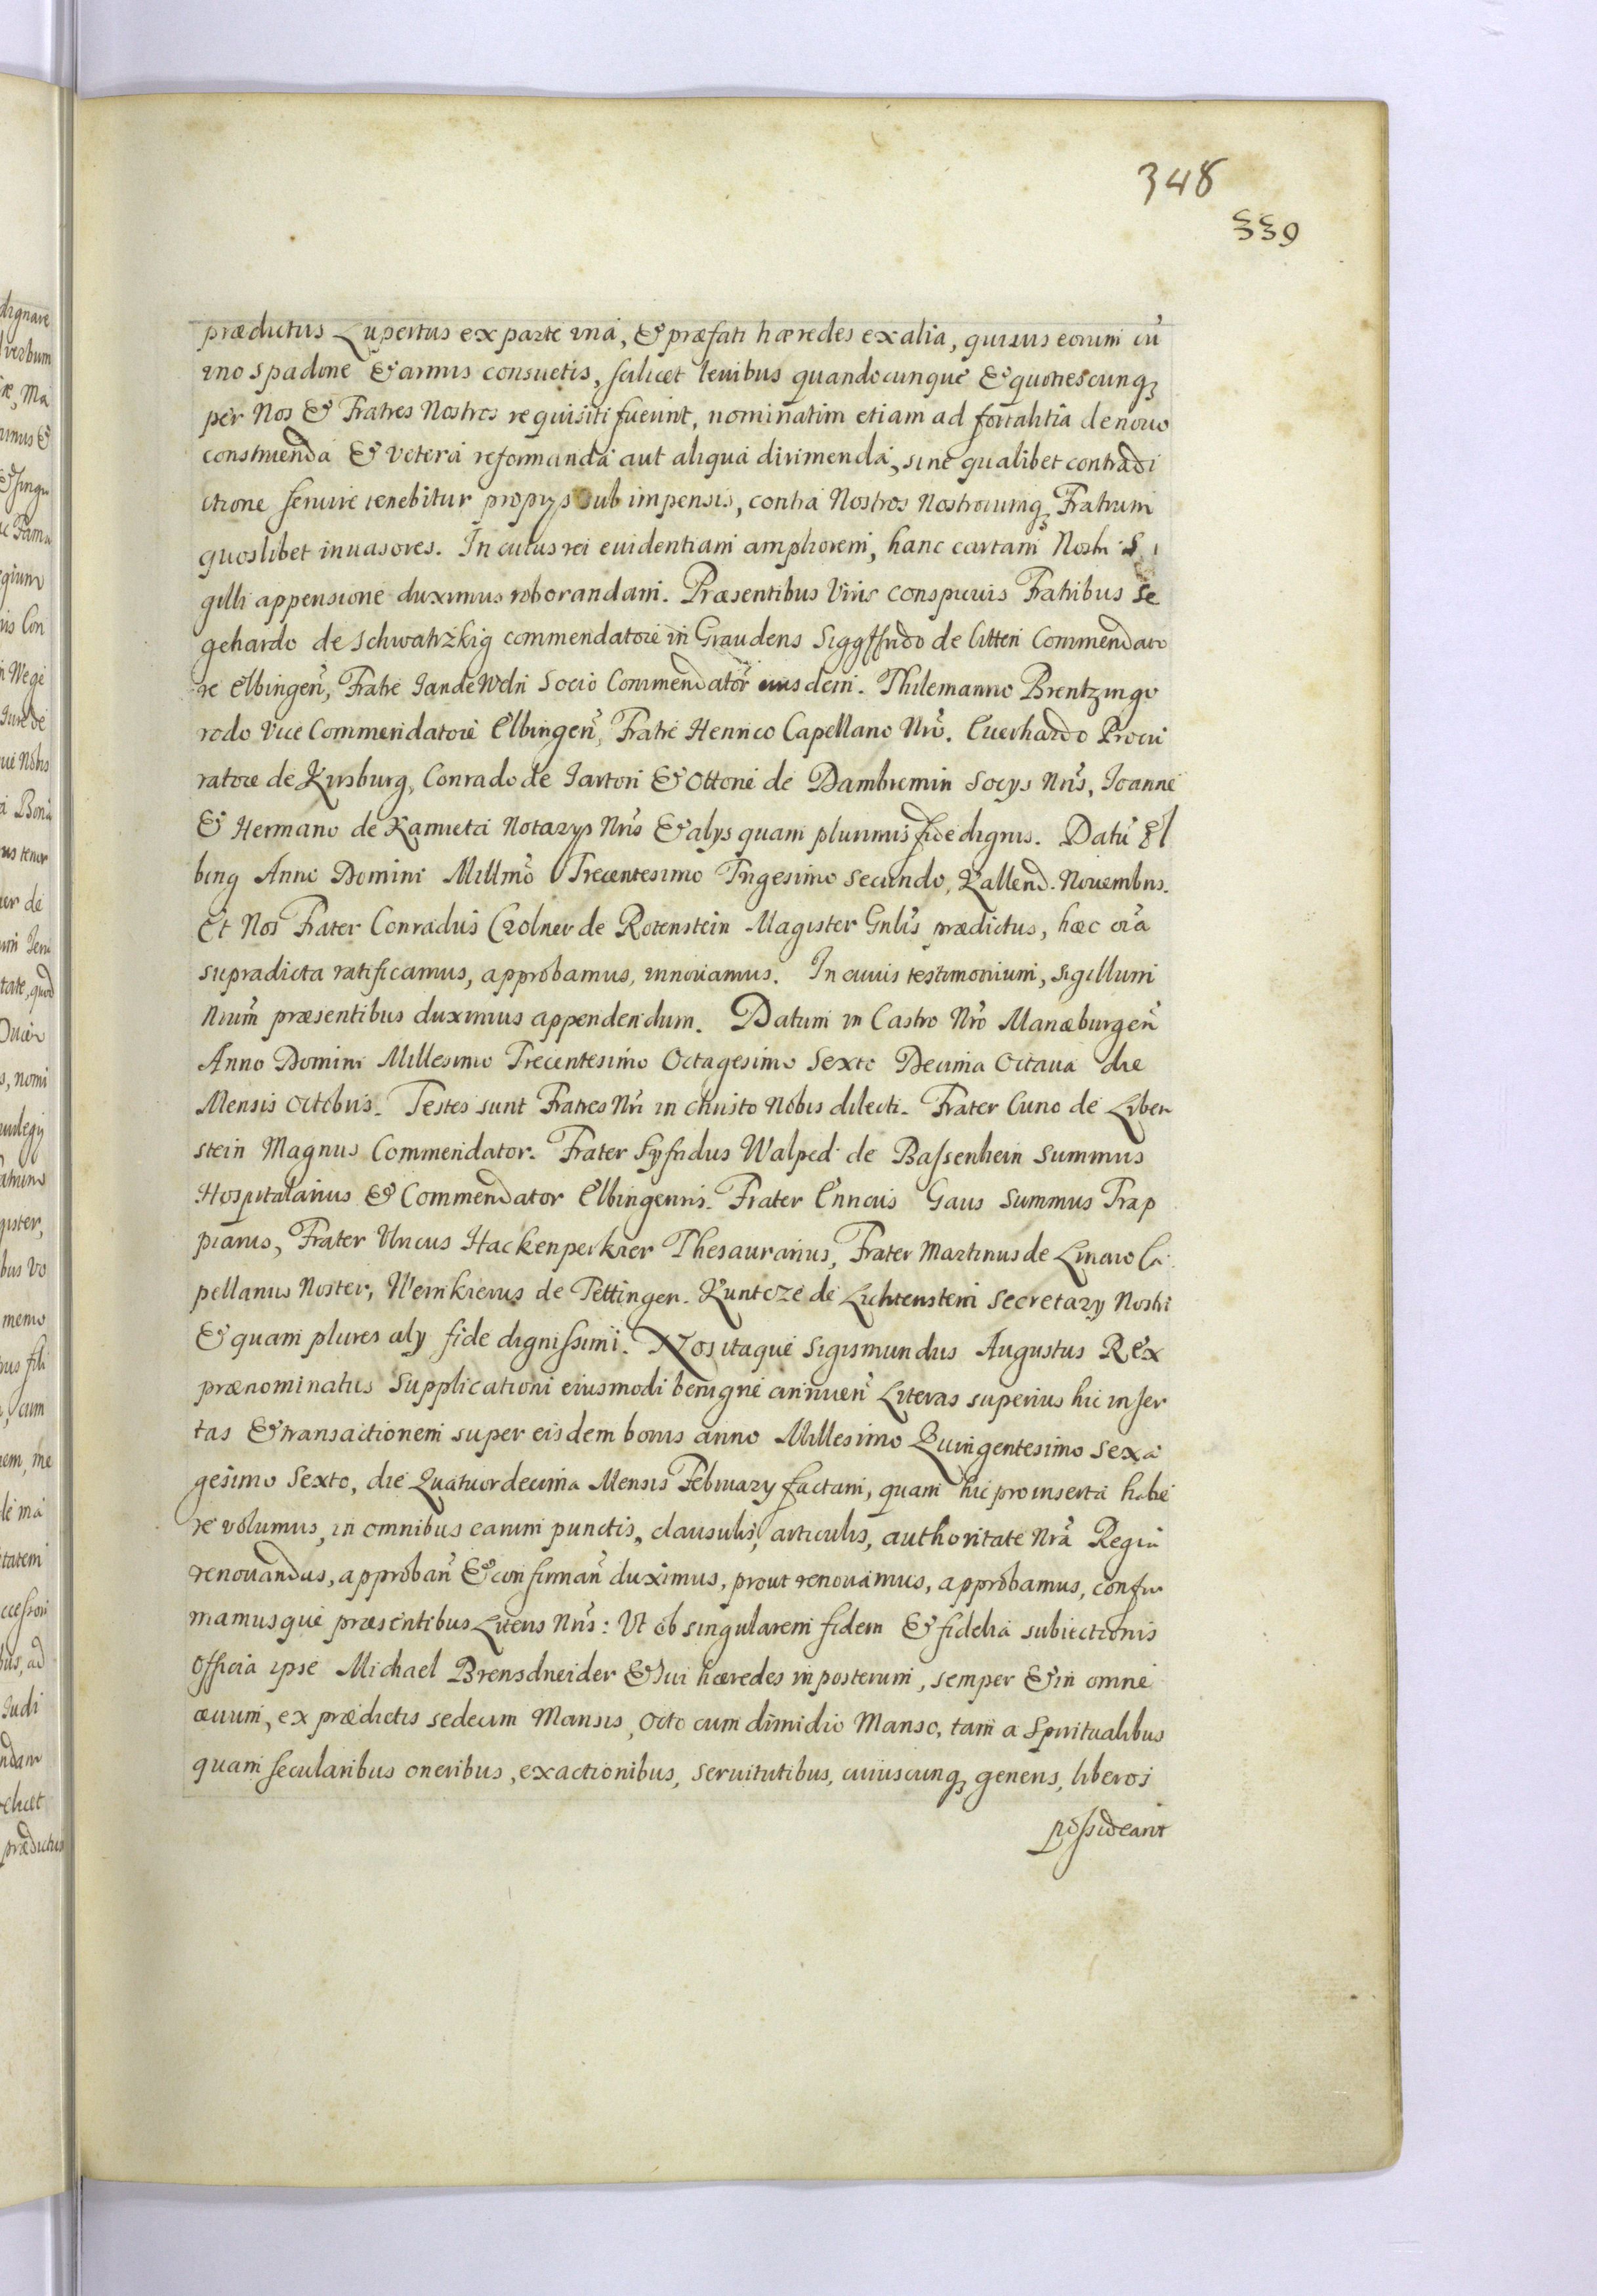 348
339
prædictus Lupertus ex parte vna, & præfati hæredes ex alia, quiuis eorum cū
vno spadone & armis consuetis, scilicet leuibus quandocunque & quotiescunq;
per Nos & Fratres Nostros requisiti fuerint, nominatim etiam ad fortalitia de nouo
construenda & vetera reformanda aut aliqua dirimenda, sine qualibet contradi
ctione seruire tenebitur proprys sub impensis, contra Nostros Nostrorumq; Fratrum
quoslibet inuasores. In cuius rei euidentiam ampliorem, hanc cartam Nostri Si
gilli appensione duximus roborandam. Præsentibus Viris conspicuis Fratribus Se
gehardo de Schwatrzkig commendatore in Graudens Siggffrido de Citten Commendato
re Elbingeñ, Fratre Jande Weln Socio Commendatoř eiusdem. Thilemanno Brentzingo
rodo Vice Commendatore Elbingeñ, Fratre Henrico Capellano Nrõ. Euerhardo Procu
ratore de Kirsburg, Conrado de Jartori & Ottone de Dambremin Socys Nrĩs, Joanne
& Hermano de Kamieta Notarys Nrĩs & alys quam plurimis fide dignis. Datū El
bing Anno Domini Millmõ Trecentesimo Trigesimo Secundo, Kallend. Nouembris.
Et Nos Frater Conradus Czolner de Rotenstein Magister Gnlĩs prædictus, hæc oĩa
supradicta ratificamus, approbamus, innouamus. In cuius testimonium, sigillum
Nrũm præsentibus duximus appendendum. Datum in Castro Nrõ Mariæburgeñ
Anno Domini Millesimo Trecentesimo Octagesimo Sexto Decima Octaua die
Mensis Octobris. Testes sunt Fratres Nrĩ in christo Nobis dilecti. Frater Cuno de Liben
stein Magnus Commendator. Frater Syfridus Walped de Bassenhein Summus
Hospitalarius & Commendator Elbingensis. Frater Ennouis Gaus Summus Trap
piarius, Frater Vricus Hackenperkzer Thesaurarius, Frater Martinus de Linaro Ca
pellanus Noster, Wernkierus de Tettingen. Kuntcze de Lichtenstein Secretary Nostri
& quam plures aly fide dignissimi. Nos itaque Sigismundus Augustus Rex
prænominatus Supplicationi eiusmodi benigne annueñ Literas superius hic inser
tas & transactionem super eisdem bonis anno Millesimo Quingentesimo Sexa
gesimo Sexto, die Quatuordecima Mensis February factam, quam hic pro inserta habe
re volumus, in omnibus earum punctis, clausulis, articulis, authoritate Nrã Regia
renouandas, approbañ & confirmañ duximus, prout renouamus, approbamus, confir
mamusque præsentibus Literis Nrĩs: Vt ob singularem fidem & fidelia subiectionis
Officia ipse Michael Brensdneider & sui hæredes in posterum, semper & in omne
æuum, ex prædictis sedecim Mansis, octo cum dimidio Manso, tam a Spiritualibus
quam secularibus oneribus, exactionibus, seruitutibus, cuiuscunq; generis, liberos
possideant